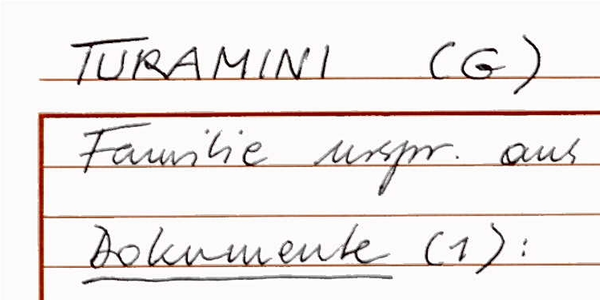 TURAMINI (G)
Familie urspr. aus
Dokumente (1):